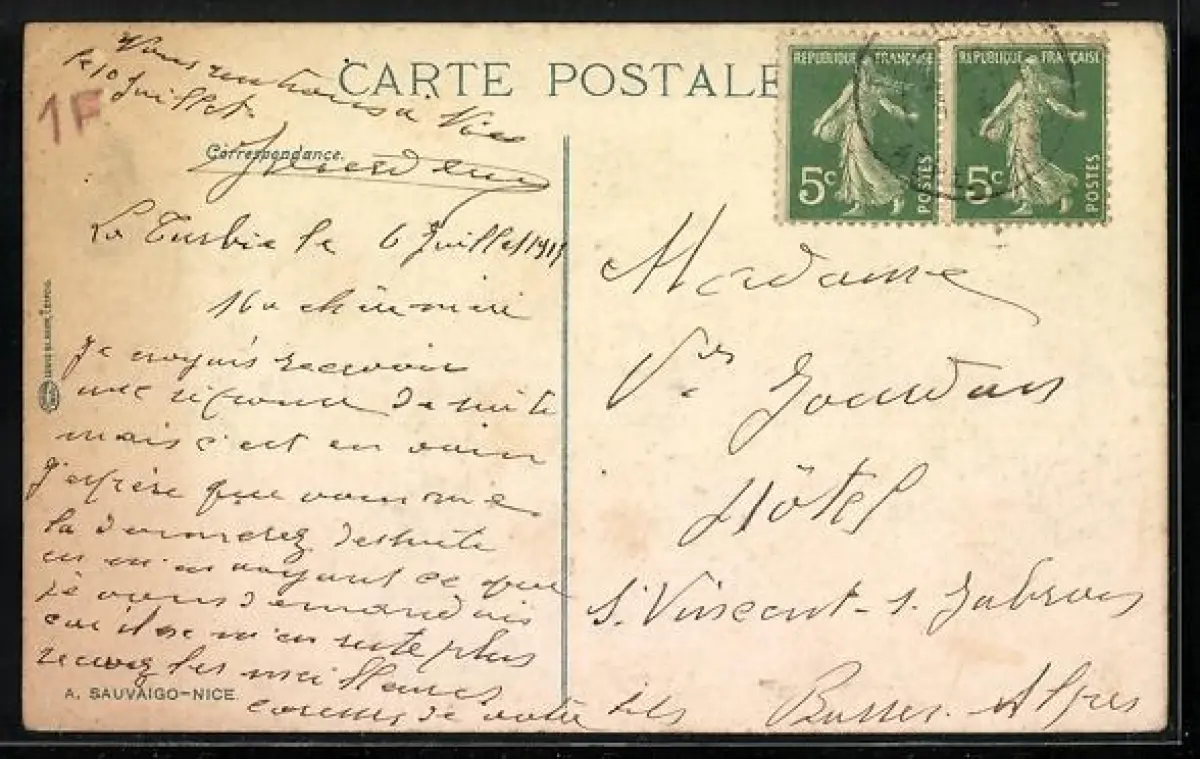 CARTE POSTALE
Nous rentrons à Nice
le 10 Juillet
1F
Correspondance.
La Turbie le 6 Juillet
Ma chère mère
Je croyais recevoir
une réponse de suite
mais c'est en vain
J'espère que vous me
la donnerez de suite
en m'envoyant ce que
je vous demandais
car il ne m'en reste plus
recevez les meilleures
caresses de votre fils
A. SAUVAIGO-NICE
RÉPUBLIQUE FRANÇAISE
5c
POSTES
RÉPUBLIQUE FRANÇAISE
5c
POSTES
Madame
Vve Jourdan
Hôtel
St. Vincent-s. Jabron
Basses-Alpes